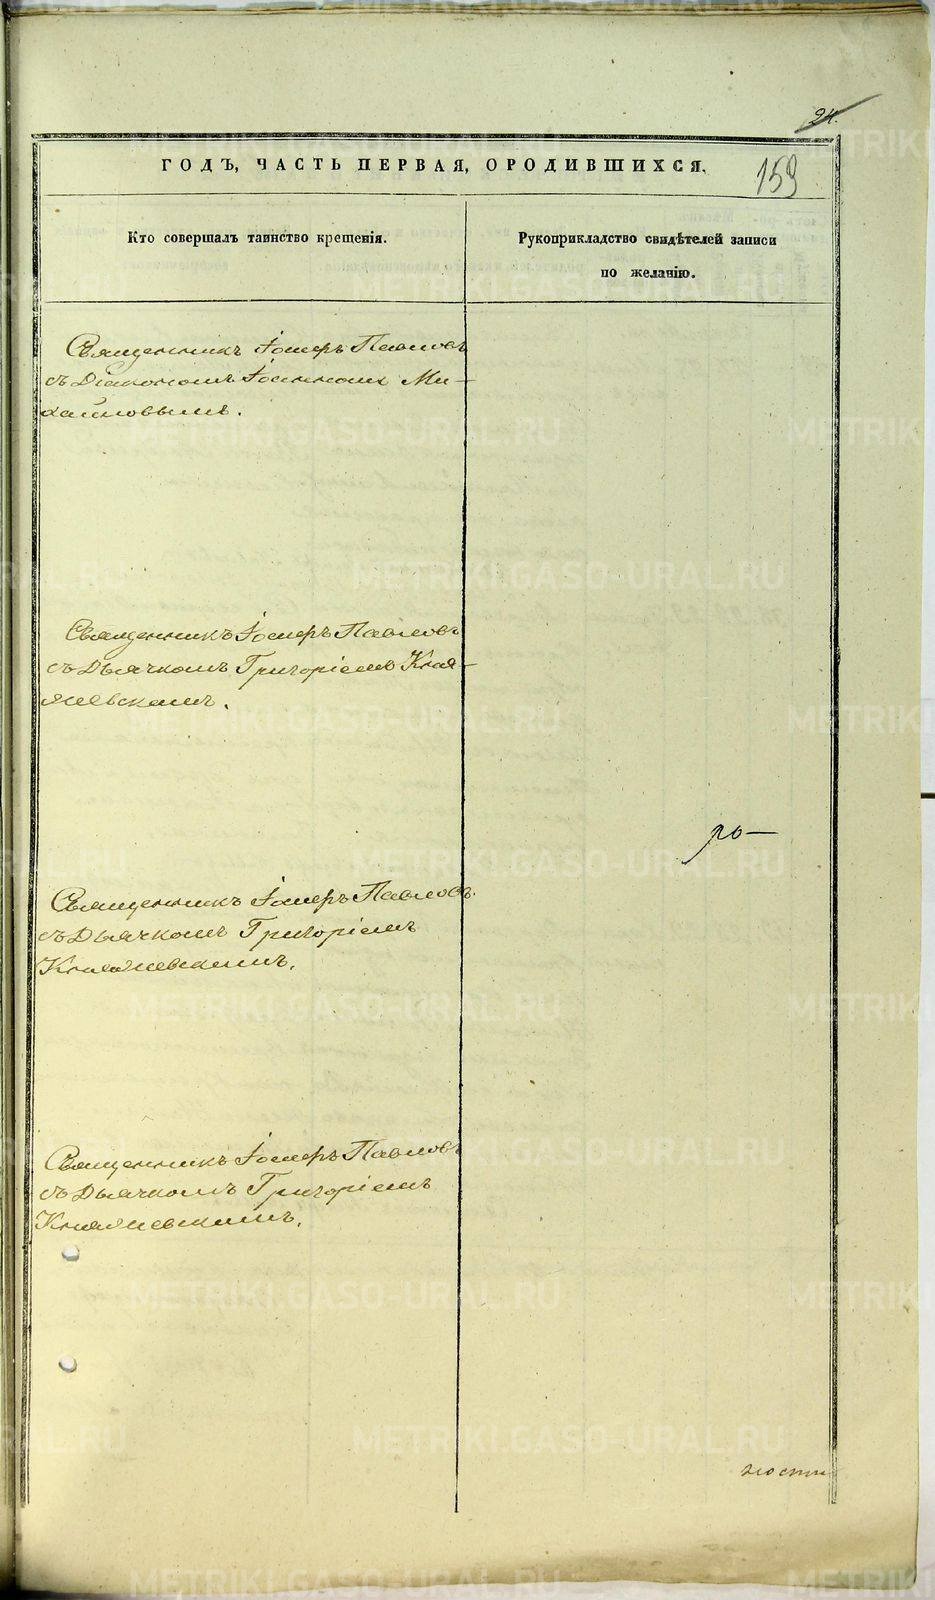 24.
ГОДЪ, ЧАСТЬ ПЕРВАЯ, О РОДИВШИХСЯ.
159
Кто совершалъ таинство крещенія.
Рукоприкладство свидѣтелей записи
по желанію.
Священникъ Павловъ
съ Діакономъ Іоанномъ Ми-
хайловымъ.
Священникъ Павловъ
съ Дьячкомъ Григоріемъ Кня-
жевскимъ.
ро-
Священникъ Павловъ
съ Дьячкомъ Григоріемъ
Княжевскимъ.
Священникъ Павловъ
съ Дьячкомъ Григоріемъ
Княжевскимъ.
ности
METRIKI.GASO-URAL.RU